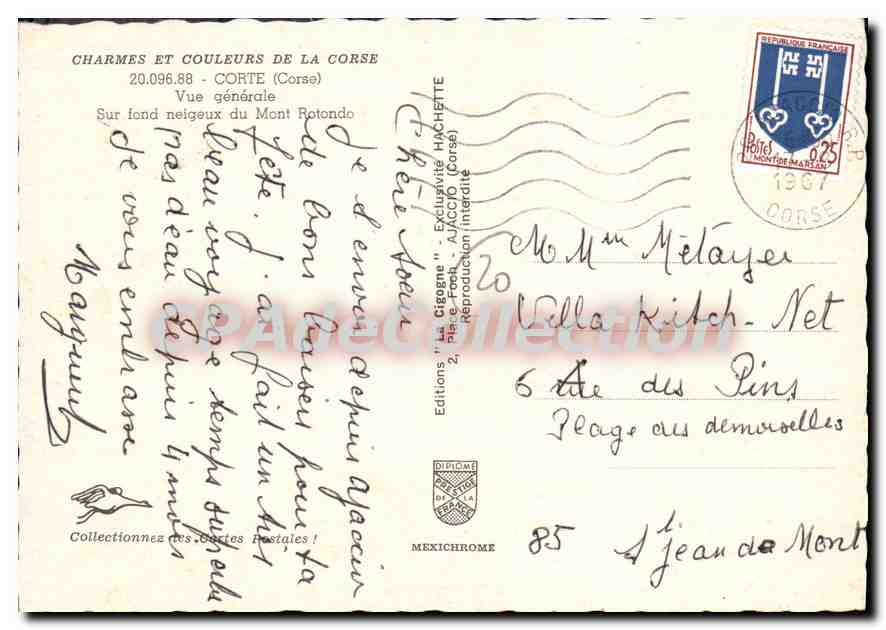 CHARMES ET COULEURS DE LA CORSE
20.096.88 - CORTE (Corse)
Vue générale
Sur fond neigeux du Mont Rotondo
Chère soeur
Je t'envoie depuis ajaccio
de bons baisers pour ta
fête. J'ai fait un très
beau voyage temps superbe
pas d'eau depuis 4 mois
Je vous embrasse
Collectionnez les Cartes Postales !
Editions "La Cigogne" - Exclusivité HACHETTE
2, Place Foch - AJACCIO (Corse)
Reproduction interdite
20
DIPLÔME
PRESTIGE
DE LA
FRANCE
MEXICHROME
REPUBLIQUE FRANÇAISE
POSTES
0,25
MONT-DE-MARSAN
1967
CORSE
M Mme Métayer
Villa Kitch-Net
6 Ave des Pins
Plage des demoiselles
85 St Jean de Mont
CPAdeCollection